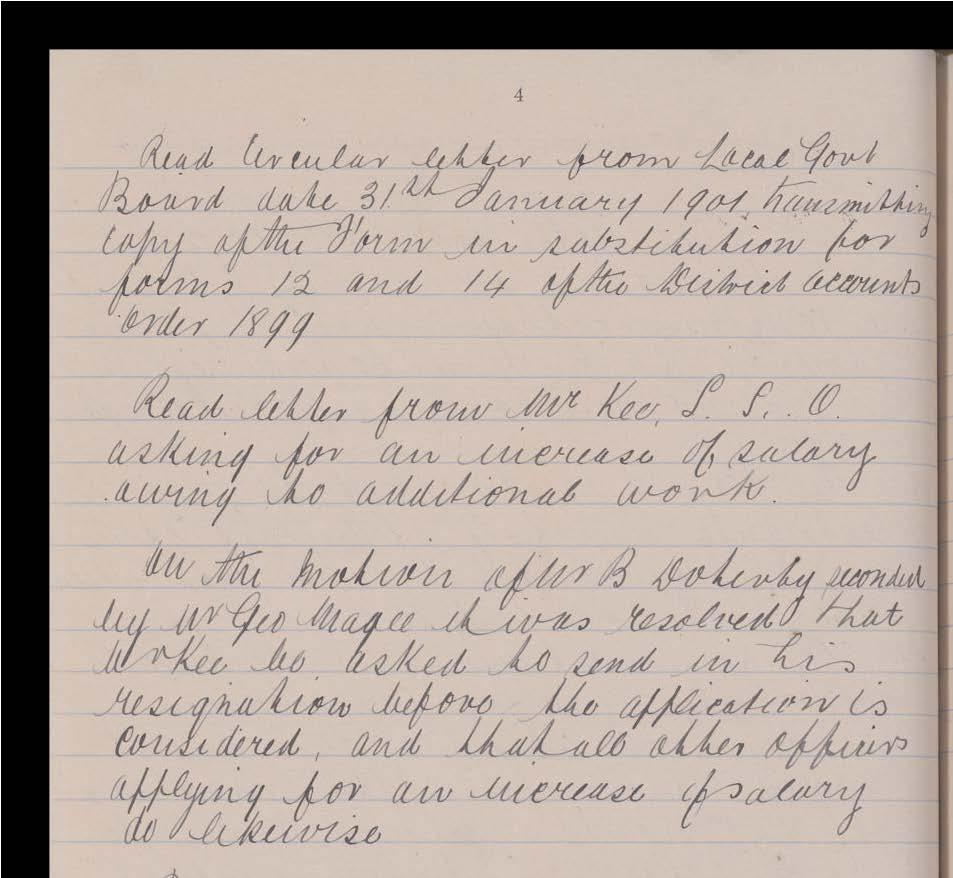 4
Read Circular letter from Local Govt
Board date 31th January 1901 transmitting
copy of the Form in substitution for
forms 12 and 14 of the District accounts
order 1899
Read letter from Mr Kee, S. S. O.
asking for an increase of salary
owing to additional work.
On the motion of Mr B Doherty seconded
by Mr Geo Magee it was resolved that
Mr Kee be asked to send in his
resignation before the application is
considered, and that all other officers
applying for an increase of salary
do likewise